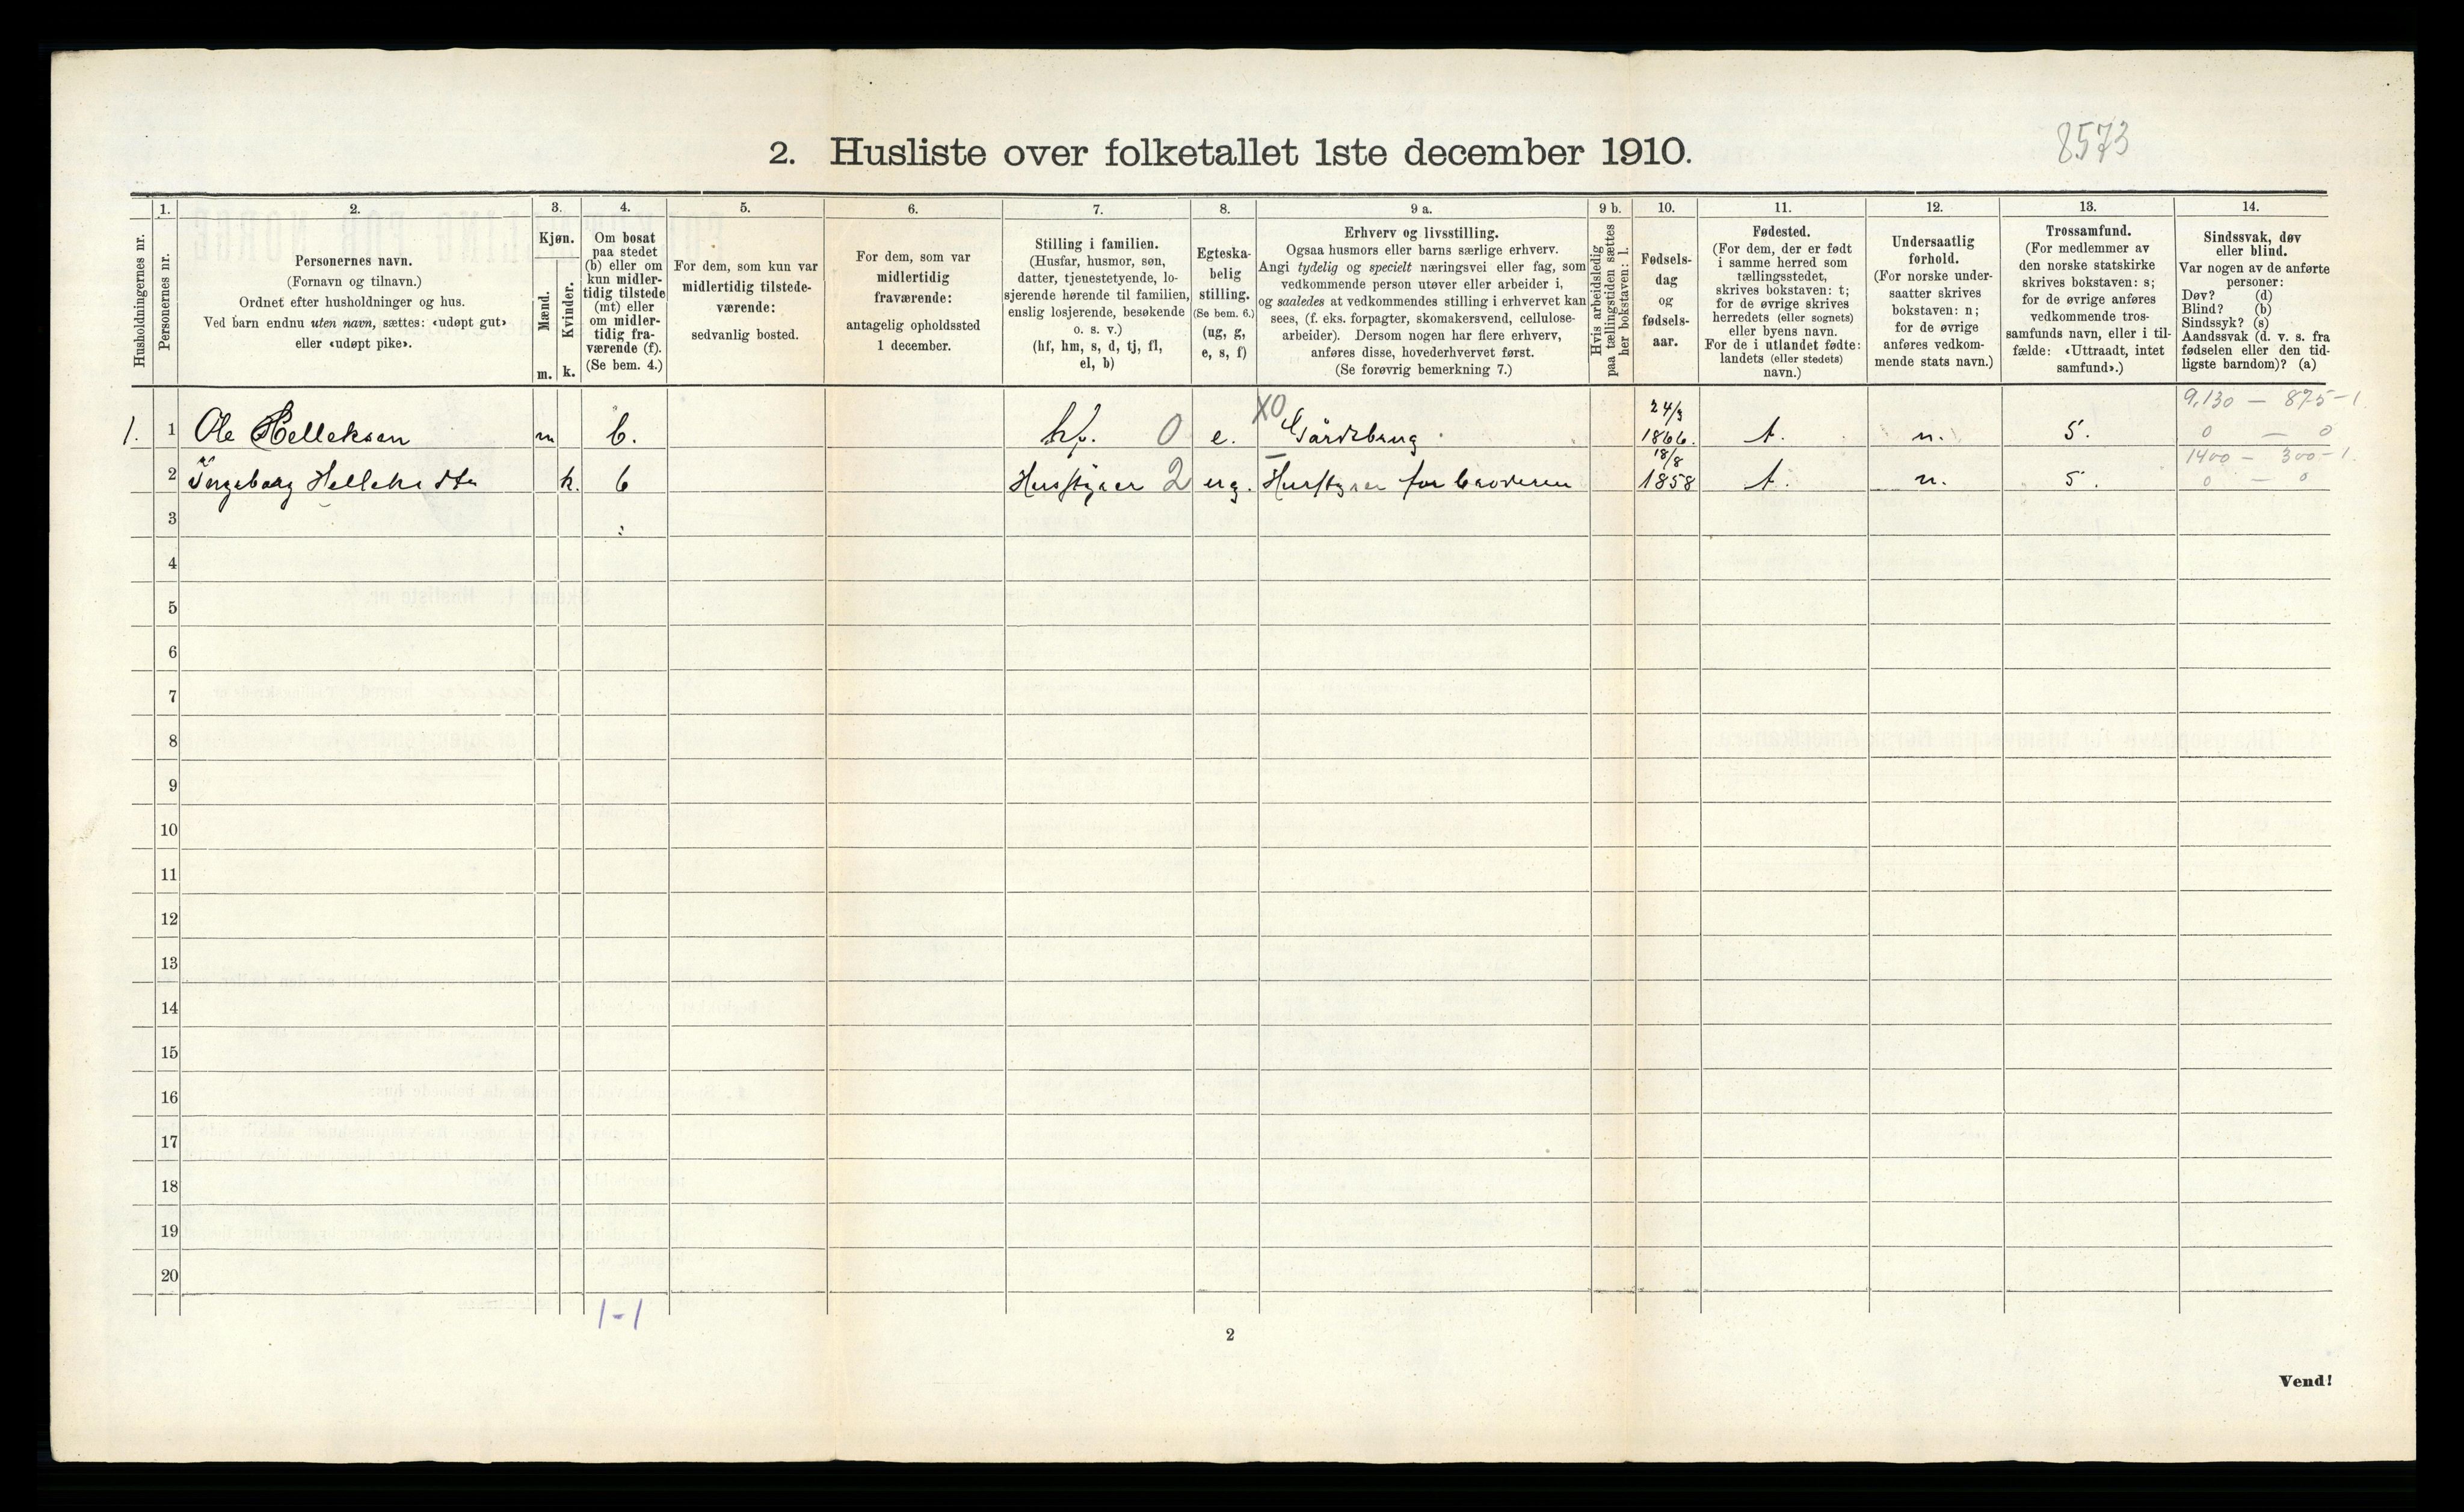 8573
2. Husliste over folketallet 1ste december 1910.
Husholdningernes nr.
1.
Personernes nr.
2.
Personernes navn.
(Fornavn og tilnavn.)
Ordnet efter husholdninger og hus.
Ved barn endnu uten navn, sættes: «udøpt gut»
eller «udøpt pike».
3.
Kjøn.
Mænd.
Kvinder.
m. k.
4.
Om bosat
paa stedet
(b) eller om
kun midler-
tidig tilstede
(mt) eller
om midler-
tidig fra-
værende (f).
(Se bem. 4.)
5.
For dem, som kun var
midlertidig tilstede-
værende:
sedvanlig bosted.
6.
For dem, som var
midlertidig
fraværende:
antagelig opholdssted
1 december.
7.
Stilling i familien.
(Husfar, husmor, søn,
datter, tjenestetyende, lo-
sjerende hørende til familien,
enslig losjerende, besøkende
o. s. v.)
(hf, hm, s, d, tj, fl,
el, b)
8.
Egteska-
belig
stilling.
(Se bem. 6.)
(ug, g,
e, s, f)
9 a.
Erhverv og livsstilling.
Ogsaa husmors eller barns særlige erhverv.
Angi tydelig og specielt næringsvei eller fag, som
vedkommende person utøver eller arbeider i,
og saaledes at vedkommendes stilling i erhvervet kan
sees, (f. eks. forpagter, skomakersvend, cellulose-
arbeider). Dersom nogen har flere erhverv,
anføres disse, hovederhvervet først.
(Se forøvrig bemerkning 7.)
9 b.
Hvis arbeidsledig
paa tællingstiden sættes
her bokstaven: l.
10.
Fødsels-
dag
og
fødsels-
aar.
11.
Fødested.
(For dem, der er født
i samme herred som
tællingsstedet,
skrives bokstaven: t;
for de øvrige skrives
herredets (eller sognets)
eller byens navn.
For de i utlandet fødte:
landets (eller stedets)
navn.)
12.
Undersaatlig
forhold.
(For norske under-
saatter skrives
bokstaven: n;
for de øvrige
anføres vedkom-
mende stats navn.)
13.
Trossamfund.
(For medlemmer av
den norske statskirke
skrives bokstaven: s;
for de øvrige anføres
vedkommende tros-
samfunds navn, eller i til-
fælde: «Uttraadt, intet
samfund».)
14.
Sindssvak, døv
eller blind.
Var nogen av de anførte
personer:
Døv? (d)
Blind? (b)
Sindssyk? (s)
Aandssvak (d. v. s. fra
fødselen eller den tid-
ligste barndom)? (a)
1. 1 Ole Helleksen m b. hf. 0 e. X0 Gårdsbrug 24/3 1866. t. n. s. 9,130 — 875-1.
0 — 0
2 Ingeborg Helleksdtr k. b Husstyrer 2 ug. Husstyrer for broderen 18/8 1858 t. n. s. 1400 — 300-1
0 — 0
3
4
5
6
7
8
9
10
11
12
13
14
15
16
17
18
19
20
1-1
2
Vend!